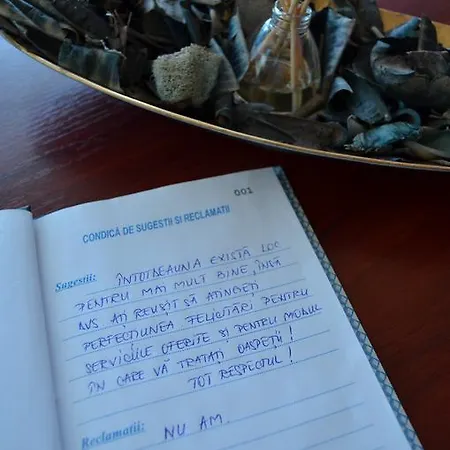 001
CONDICĂ DE SUGESTII SI RECLAMATII
Sugestii: ÎNTOTDEAUNA EXISTĂ LOC
PENTRU MAI MULT BINE, ÎNSĂ
DVS AȚI REUȘIT SĂ ATINGEȚI
PERFECȚIUNEA FELICITĂRI PENTRU
SERVICIILE OFERITE ȘI PENTRU MODUL
ÎN CARE VĂ TRATAȚI OASPEȚII!
TOT RESPECTUL!
Reclamatii: NU AM.